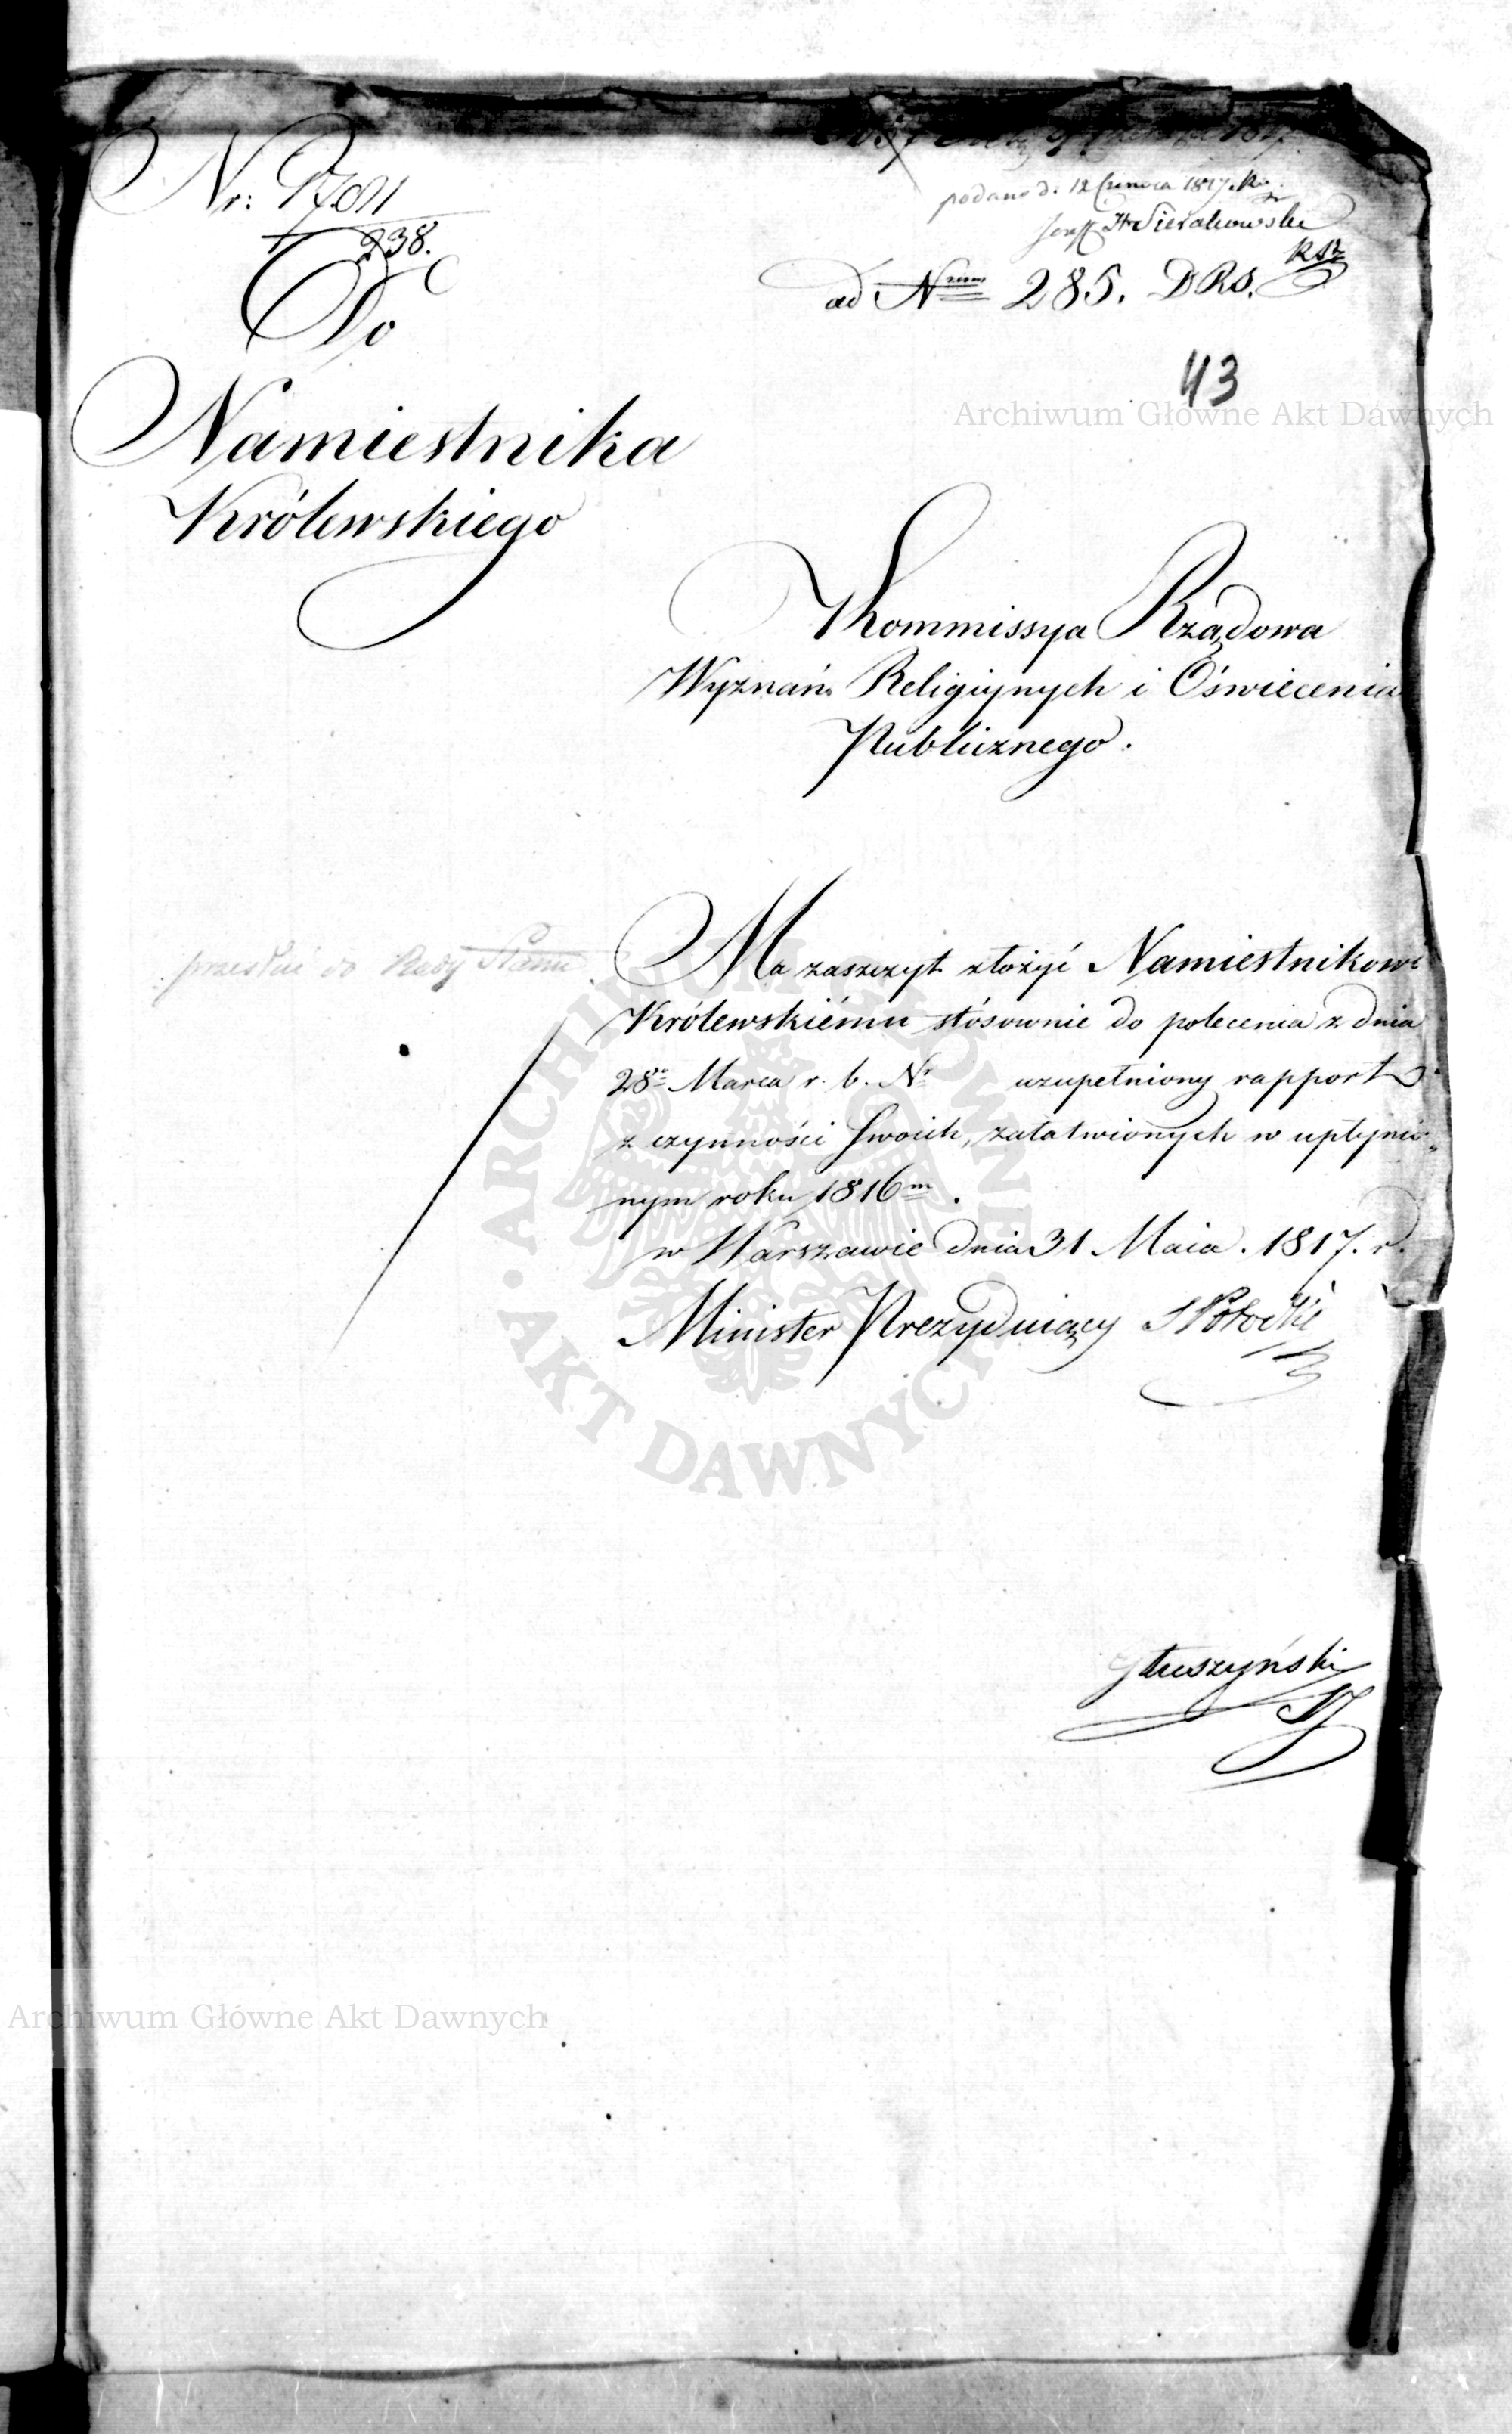 Nr:
238.
podano d. 12 Czerwca 1817. Ru
Sierakowski
RSt
ad Num 285. DRS.
43
Archiwum Główne Akt Dawnych
Do
Namiestnika
Królewskiego
Kommissya Rządowa
Wyznań Religiynych i Oświecenia
Publicznego.
przesłać do Rady Stanu
Ma zaszczyt złożyć Namiestnikowi
Królewskiému stósownie do polecenia z dnia
28o Marca r. b. Nr uzupełniony rapport
z czynności swoich, załatwionych w upłynio-
nym roku 1816m.
w Warszawie dnia 31 Maia. 1817. r.
Minister Prezyduiący SPotocki
Głuszyński
SJ
ARCHIWUM GŁÓWNE
AKT DAWNYCH
Archiwum Główne Akt Dawnych